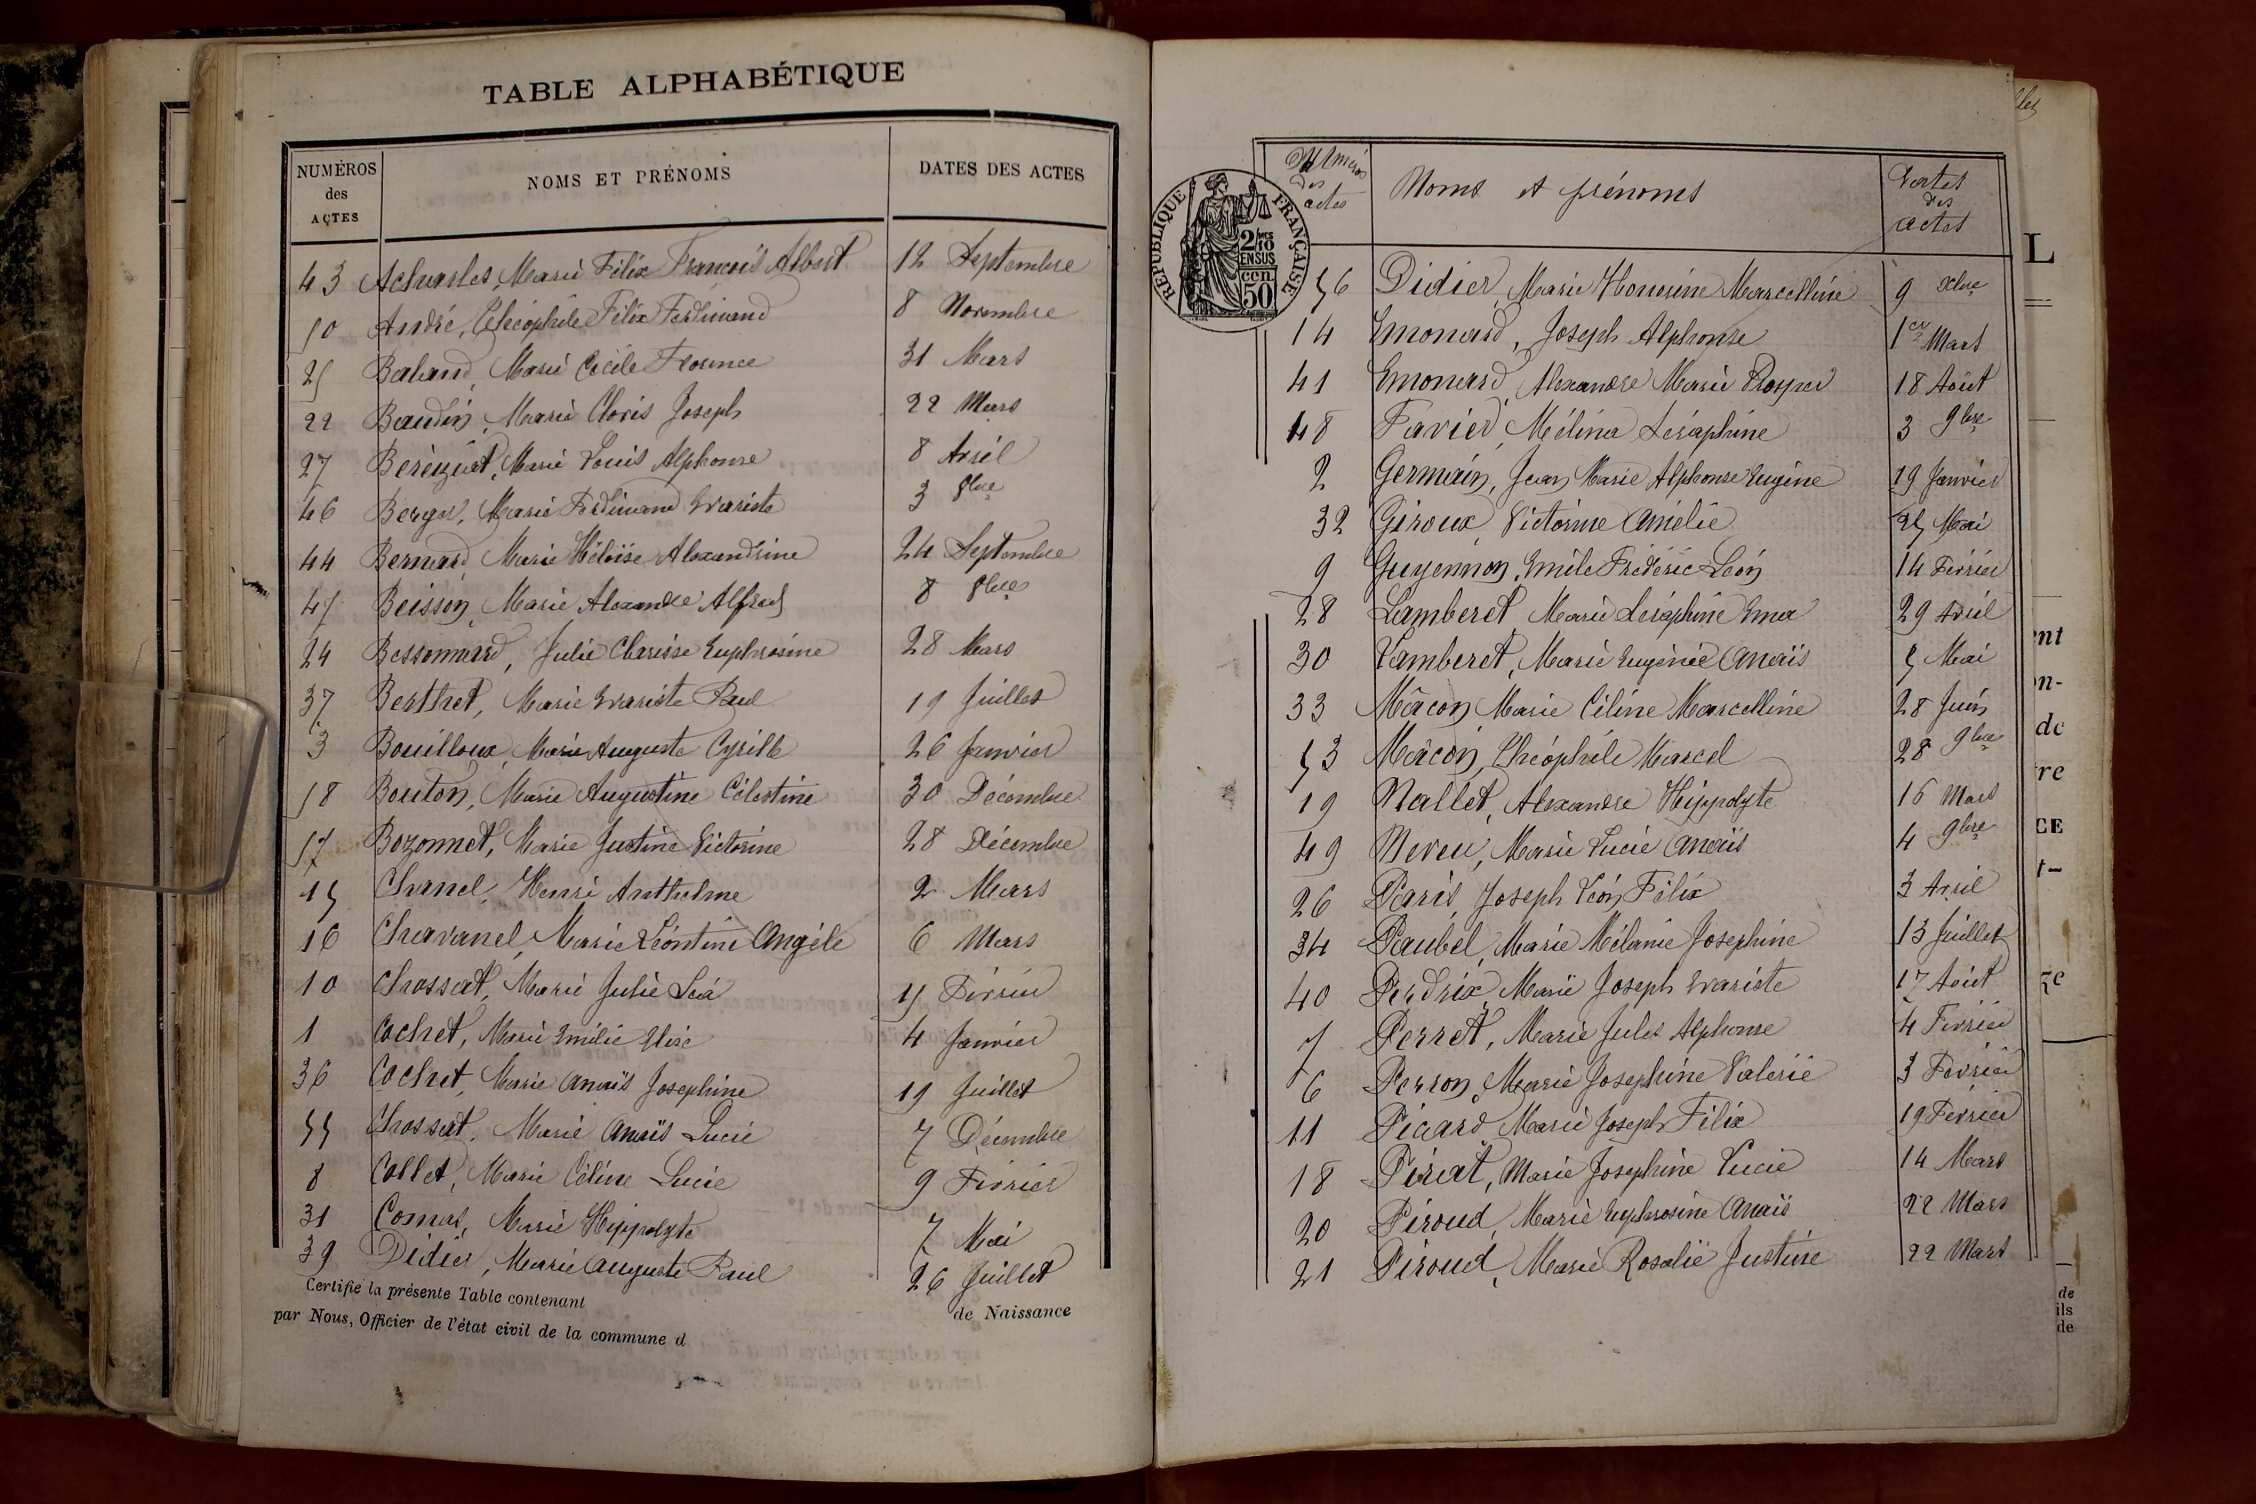 TABLE ALPHABÉTIQUE
NUMÉROS des ACTES
NOMS ET PRÉNOMS
DATES DES ACTES
43 Achvarles, Marie Félix François Albert 12 Septembre
50 André, Théophile Félix Ferdinand 8 Novembre
25 Baland, Marie Cécile Florence 31 Mars
22 Baudin, Marie Clovis Joseph 22 Mars
27 Béréziat, Marie Louis Alphonse 8 Avril
46 Berger, Marie Ferdinand Evariste 3 8bre
44 Bernard, Marie Héloïse Alexandrine 24 Septembre
47 Beisson, Marie Alexandre Alfred 8 8bre
24 Bessonnard, Julie Clarisse Euphrosine 28 Mars
37 Berthet, Marie Evariste Paul 19 Juillet
3 Bouilloux, Marie Auguste Cyrille 26 Janvier
58 Bouton, Marie Augustine Célestine 30 Décembre
57 Bozonnet, Marie Justine Victorine 28 Décembre
15 Chanel, Henri Anthelme 2 Mars
16 Chavanel, Marie Léontine Angèle 6 Mars
10 Chossat, Marie Julie Léa 15 Février
1 Cochet, Marie Emilie Elise 4 Janvier
36 Cochet, Marie Anaïs Josephine 19 Juillet
55 Chossat, Marie Anaïs Lucie 7 Décembre
8 Collet, Marie Céline Lucie 9 Février
31 Comas, Marie Hippolyte 7 Mai
39 Didier, Marie Auguste Paul 26 Juillet
Certifié la présente Table contenant de Naissance
par Nous, Officier de l'état civil de la commune d
RÉPUBLIQUE FRANÇAISE
2/10 EN SUS
50 cen
Numéros des actes
Noms et prénoms
Dates des actes
56 Didier, Marie Honorine Marcelline 9 Xbre
14 Emonard, Joseph Alphonse 1er Mars
41 Emonard, Alexandre Marie Prosper 18 Août
48 Favier, Mélina Séraphine 3 9bre
2 Germain, Jean Marie Alphonse Eugène 19 Janvier
32 Giroux, Victorine Amélie 25 Mai
9 Guyennon, Emile Frédéric Léon 14 Février
28 Lamberet, Marie Séraphine Ema 29 Avril
30 Lamberet, Marie Eugénie Anaïs 5 Mai
33 Mâcon, Marie Céline Marcelline 28 Juin
53 Mâcon, Théophile Marcel 28 9bre
19 Nallet, Alexandre Hippolyte 16 Mars
49 Neveu, Marie Lucie Anaïs 4 9bre
26 Paris, Joseph Léon Félix 3 Avril
34 Paubel, Marie Mélanie Josephine 13 Juillet
40 Perdrix, Marie Joseph Evariste 17 Août
7 Perret, Marie Jules Alphonse 4 Février
6 Perron, Marie Josephine Valérie 3 Février
11 Picard, Marie Joseph Félix 19 Février
18 Pirat, Marie Josephine Lucie 14 Mars
20 Piroud, Marie Euphrosine Anaïs 22 Mars
21 Piroud, Marie Rosalie Justine 22 Mars
L
ent
on-
de
re
CE
t-
de
ils
de